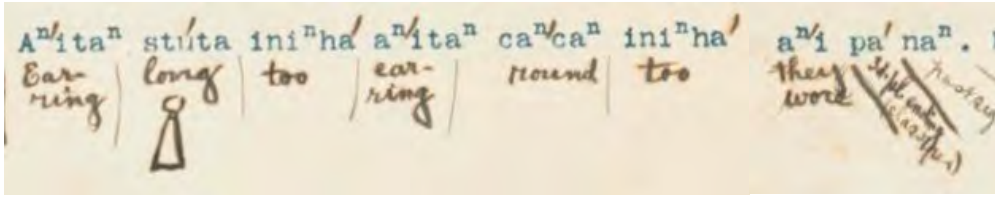 Aⁿ′itaⁿ stu′ta iniⁿha′ aⁿ′itaⁿ caⁿ′caⁿ iniⁿha′ aⁿ′i pa′ naⁿ.
Ear- long too ear- round too they
ring ring wore